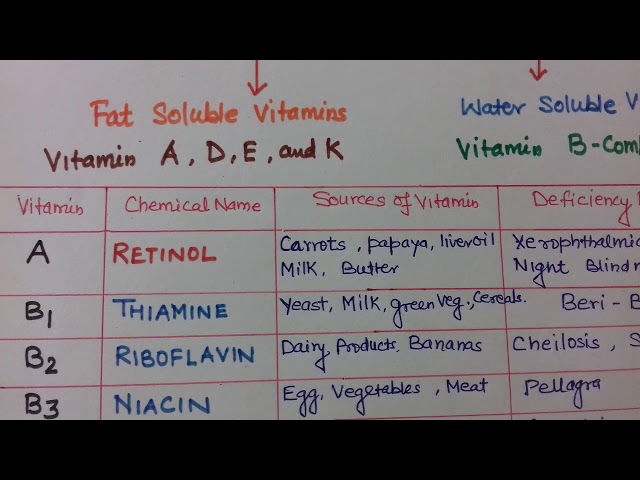 Fat Soluble Vitamins
Water Soluble V
Vitamin A, D, E, and K
Vitamin B-Com
Vitamin
Chemical Name
Sources of Vitamin
Deficiency
A
RETINOL
Carrots, papaya, liveroil
Milk, Butter
Xerophthalmia
Night Blindn
B1
THIAMINE
Yeast, Milk, green veg., cereals.
Beri - B
B2
RIBOFLAVIN
Dairy Products, Bananas
Cheilosis, S
B3
NIACIN
Egg, Vegetables, Meat
Pellagra